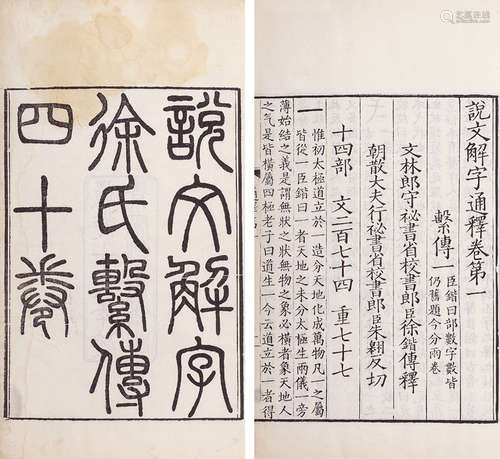 說文解字
徐氏繫傳
四十卷
說文解字通釋卷第一
繫傳一
臣鍇曰部數字數皆
仍舊題今分兩卷
文林郎守祕書省校書郎臣徐鍇傳釋
朝散大夫行祕書省校書郎臣朱翱反切
十四部 文二百七十四 重七十七
一 惟初太極道立於一造分天地化成萬物凡一之屬
皆從一臣鍇曰一者天地之未分太極生兩儀一旁
薄始結之義是謂無狀之狀無物之象必橫者象天地人
之气是皆橫屬四極老子曰道生一今云道立於一者得